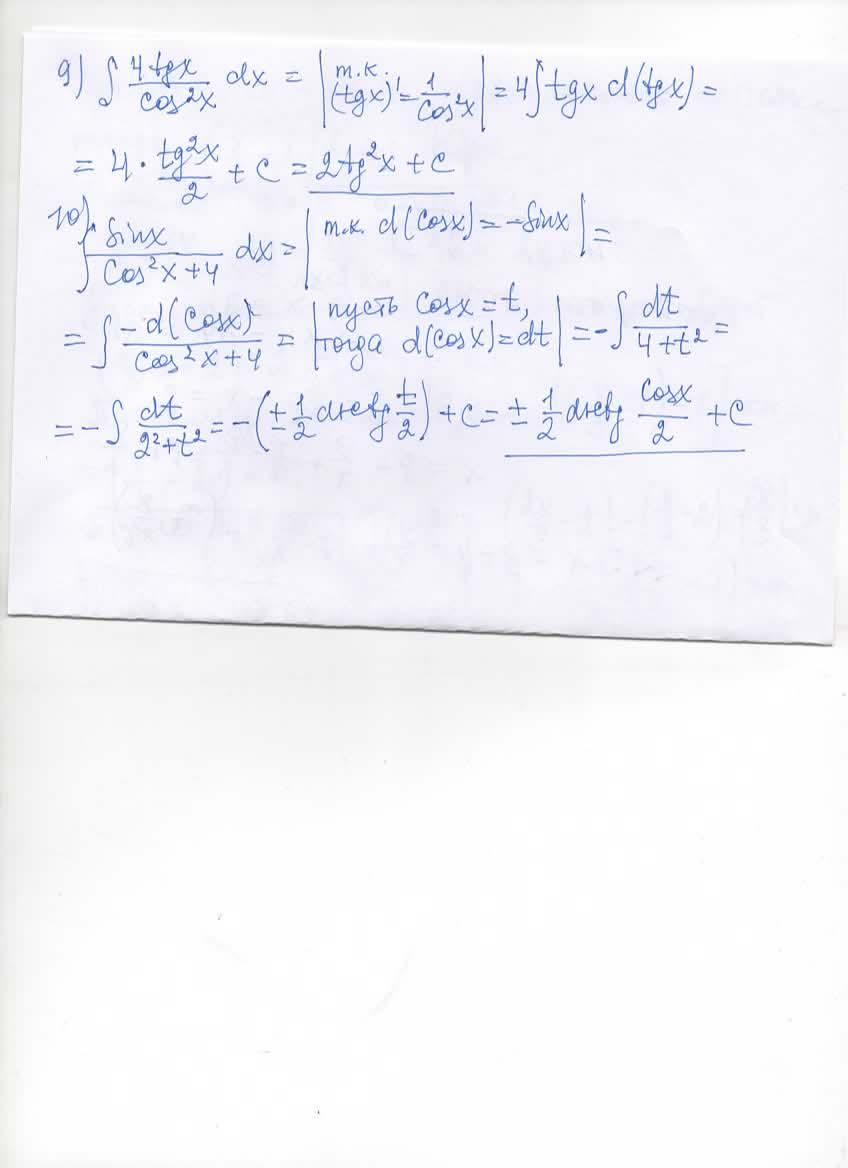 9) ∫ 4tgx/cos²x dx = | т.к. (tgx)' = 1/cos²x | = 4∫tgx d(tgx) =
= 4 · tg²x/2 + C = 2tg²x + C
10) ∫ sinx/(cos²x+4) dx = | т.к. d(cosx) = -sinx | =
= ∫ -d(cosx)/(cos²x+4) = | пусть cosx = t, тогда d(cosx) = dt | = -∫ dt/(4+t²) =
= -∫ dt/(2²+t²) = -(± 1/2 arctg t/2) + C = ± 1/2 arctg cosx/2 + C